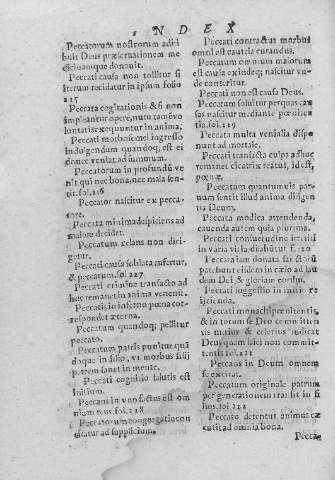 INDEX
Peccatorum nostrorum adiri
buit Deus præseruationem me
dicinamque donauit.
Peccati causa non tollitur si
iterum recidatur in ipsum folio
215
Peccata cogitationis &si non
impleantur opere, nutu tamē vo
luntatis exequuntur in anima,
Peccati morbosi mel ingresso
indulgendum quandoq; est ei
donec veniat ad summum.
Peccatorum in profundū ve
nit qui nec bona, nec mala sen-
tit. fol. 216
Peccator nascitur ex pecca-
tore.
Peccata minima despiciens ad
maiora decidet.
Peccatum celans non diri-
getur.
Peccati causa sublata aufertur,
& peccatum. fol. 227
Peccati crimina transacto ad
huc remanet in anima venenū.
Peccatis in inferno pœna cor-
respondet æterna.
Peccatum quandoq; pellitur
peccato.
Peccatum patris punitur quā
doque in filio, vt morbus filij
patrem sanat in mente.
Peccati cognitio salutis est
initium.
Peccans in vno factus est om
nium reus. fol. 218
Peccatorum congregatio con
citatur ad supplicium.
Peccati contractus morbus
omni est cautela curandus.
Peccatum omnium malorum
est causa ex indeq; nascitur vn-
de conteritur.
Peccati non est causa Deus.
Peccatum soluitur per quas ca-
sas nascitur mediante pœniten
tia. fol. 219
Peccati multa venialia dispo
nunt ad mortale.
Peccati transacta culpa adhuc
remanet cicatrix reatus, id est,
pœnæ.
Peccatum quantumuis par-
uum sentit illud anima diligen
tis Deum.
Peccata modica attendenda,
cauenda autem quia plurima.
Peccati consuetudine irretiti
in varia vitia, dilabūtur. f. 220
Peccata iam donata sanctorū
patebunt eisdem in cælo ad lau
dem Dei & gloriam eorum.
Peccati suggestio in initio re
ijcienda.
Peccati monachi penitentis,
& in totum se Deo committen
tis tardius & celerius indicat
Deus quam laici non commit-
tentis fol. 221
Peccans in Deum omnem
se excitat.
Peccatum originale patrum
per generationem transit in fi
lios. fol 222
Peccato detentus animus ex
cutit ad omnia bona.
Pecca-